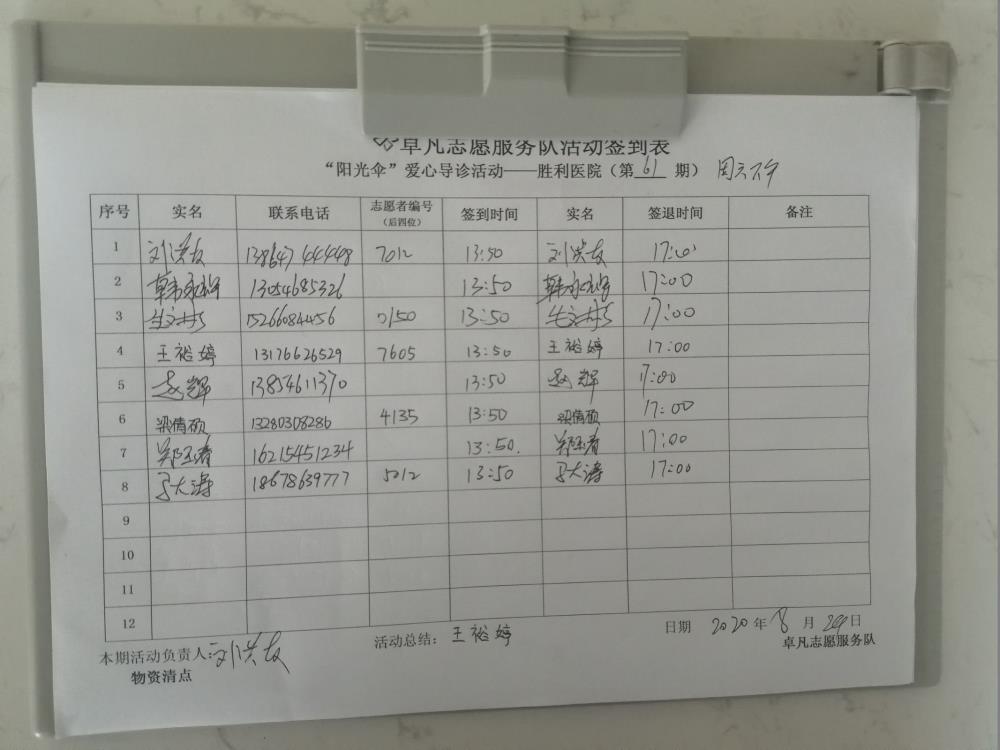 卓凡志愿服务队活动签到表
“阳光伞”爱心导诊活动——胜利医院（第 61 期） 周六下午
序号 实名 联系电话 志愿者编号（后四位） 签到时间 实名 签退时间 备注
1 刘洪友 13864744448 7012 13:50 刘洪友 17:00
2 韩永辉 13054685326 13:50 韩永辉 17:00
3 15266084456 0150 13:50 17:00
4 王裕婷 13176626529 7605 13:50 王裕婷 17:00
5 赵辉 13854611370 13:50 赵辉 17:00
6 梁倩硕 13280308286 4135 13:50 梁倩硕 17:00
7 16215451234 13:50. 17:00
8 于大海 18678639777 5012 13:50 于大海 17:00
9
10
11
12
日期 2020年 8 月 29日
活动总结：王裕婷
本期活动负责人：刘洪友
卓凡志愿服务队
物资清点